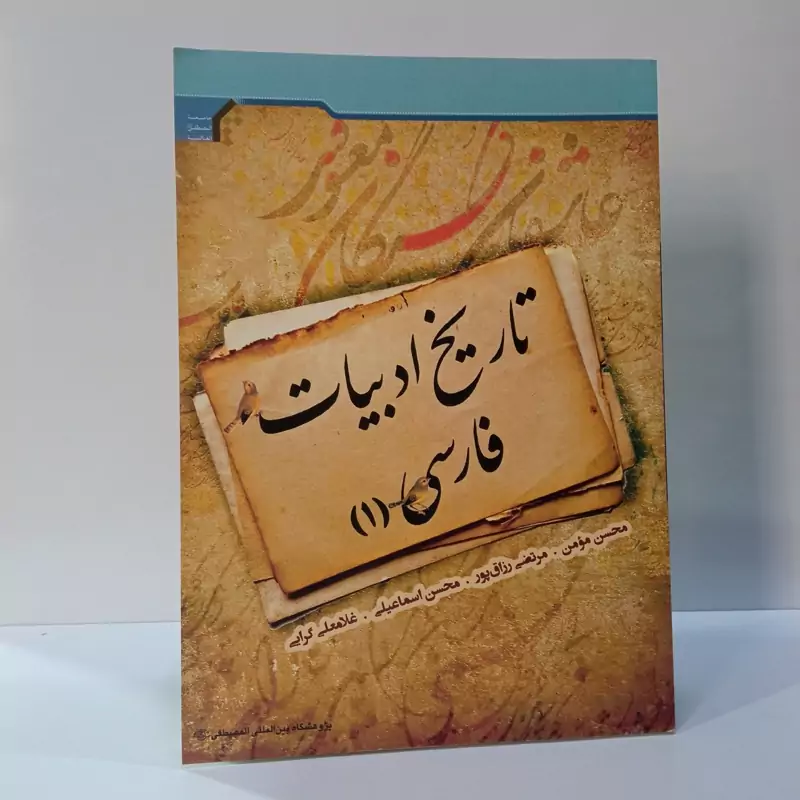 جامعة
المصطفی
العالمیة
تاریخ ادبیات
فارسی (۱)
محسن مؤمن . مرتضی رزاق‌پور . محسن اسماعیلی . غلامعلی گرایی
پژوهشگاه بین‌المللی المصطفی